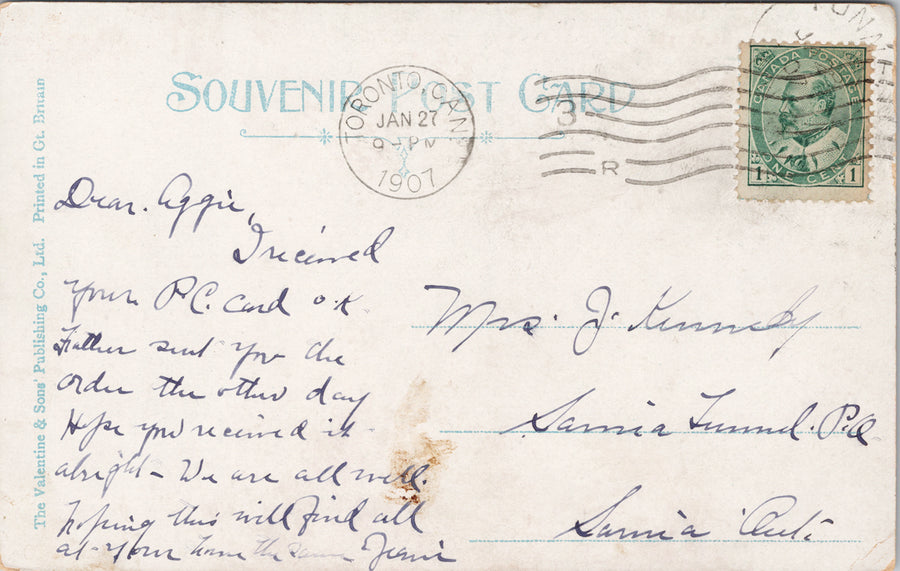 SOUVENIR POST CARD
TORONTO, CAN.
JAN 27
9 - PM
1907
3
R
CANADA POSTAGE
ONE CENT
1 1
The Valentine & Sons' Publishing Co., Ltd. Printed in Gt. Britain
Dear. Aggie,
I received
your P.C. Card O.K
Father sent you the
order the other day
Hope you received it
alright - We are all well.
hoping this will find all
at your home the same Jean
Mrs. J. Kennedy
Sarnia Tunnel. P.O
Sarnia Ont.